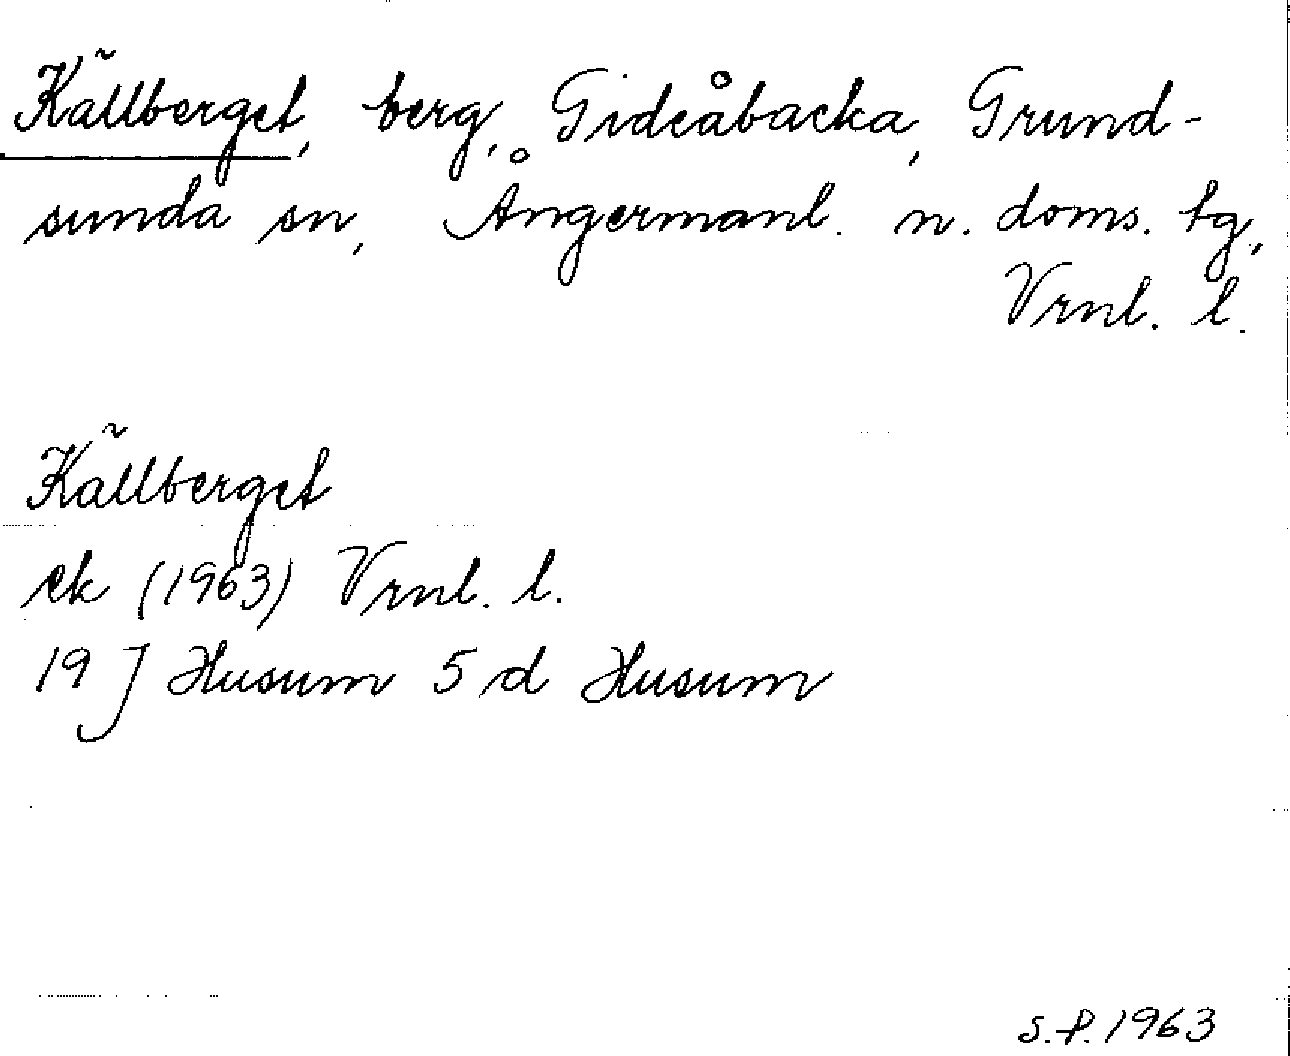 Källberget, berg, Gideåbacka, Grund-
sunda sn, Ångermanl. n. doms. tg,
Vrnl. l.
Källberget
ek (1963) Vrnl. l.
19 J Husum 5 d Husum
S.P. 1963